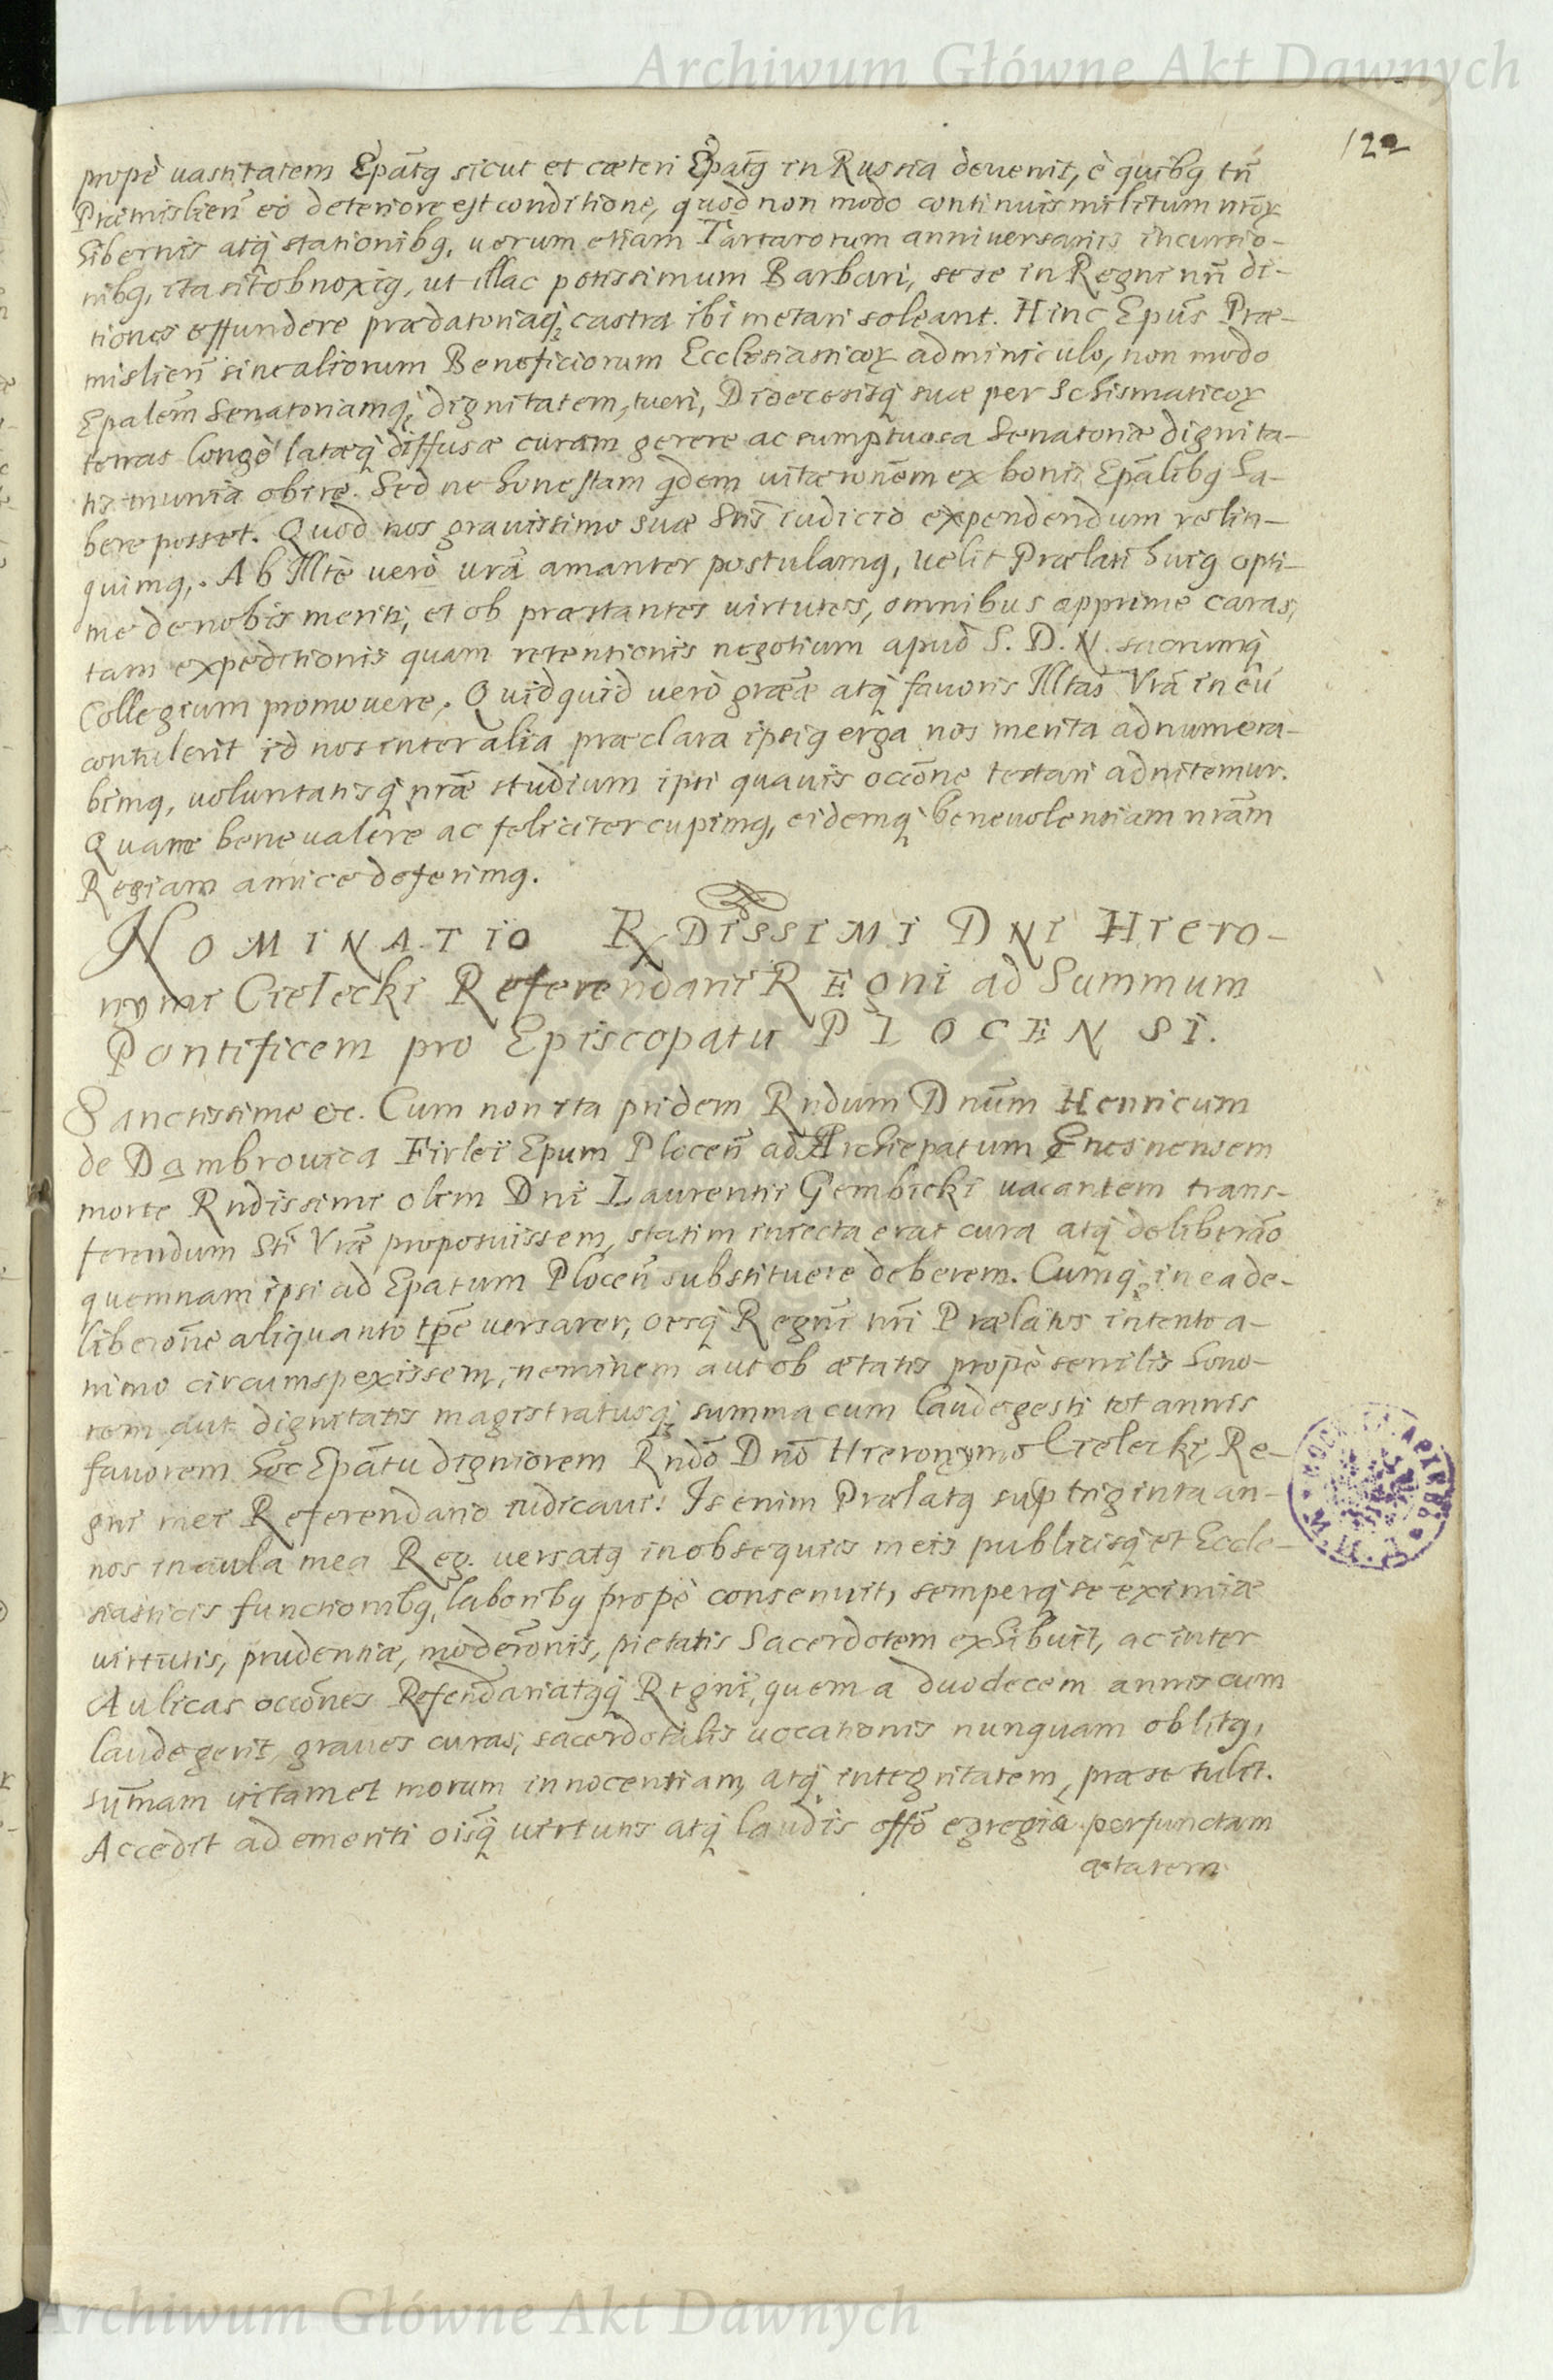 Archiwum Główne Akt Dawnych
122
propè uastitatem Epātꝰ sicut et cæteri Epātꝰ in Russia deuenit, è quibꝰ tñ
Præmislieñ eò deteriore est conditione, quòd non modo continuis militum nr̄oꝝ
hibernis atq̨ stationibꝰ, uerum etiam Tartarorum anniuersariis incursio-
nibꝰ, ita sit obnoxiꝰ, ut illac potissimum Barbari, sese in Regni nr̄i di-
tiones effundere prædatoriaq̨ castra ibi metari soleant. Hinc Epūs Præ-
mislieñ sine aliorum Beneficiorum Ecclesiasticoꝝ adminiculo, non modo
Epalem̄ Senatoriamq̨ dignitatem, tueri, Dioecesisq̨ suæ per Schismaticoꝝ
terras longè latæq̨ diffusæ curam gerere ac sumptuosa Senatoriæ dignita-
tis munia obire. Sed ne honestam q̄dem uitæ ronēm ex bonis Epālibꝰ ha-
bere posset. Quod nos grauissimo suæ Stis̄ iudicio expendendum relin-
quimꝰ. Ab Illtē uerò urā amanter postulamꝰ, uelit Prælati huiꝰ opti-
me de nobis meriti, et ob præstantes uirtutes, omnibus apprime caras,
tam expeditionis quam retentionis negotium apud S. D. N. sacrumq̨
Collegium promouere. Quidquid uerò grǣæ atq̨ fauoris Illtas̄ Vrā in eū
contulerit id nos inter alia præclara ipsiꝰ erga nos merita adnumera-
bimꝰ, uoluntatisq̨ nrǣ studium ipsi quauis occōne testari adnitemur.
Quam bene ualere ac feliciter cupimꝰ, eidemq̨ beneuolentiam nrām
Regiam amice deferimꝰ.
NOMINATIO RDISSIMI DNI Hiero-
nymi Cielecki Referendarii REGni ad Summum
Pontificem pro Episcopatu PLOCENSI.
Sanctissime etc. Cum non ita pridem Rndum Dnūm Henricum
de Dambrouica Firlei Epum Ploceñ ad Archiepatum Gnesnensem
morte Rndissimi olim Dni Laurentii Gembicki uacantem trans-
ferendum Sti̅ Vrǣ proposuissem, statim iniecta erat cura atq̨ deliberāo
quemnam ipsi ad Epatum Ploceñ substituere deberem. Cumq̨ in ea de-
liberōne aliquanto tp̄e uersarer, oesq̨ Regni̅ nr̄i Prælatos intento a-
nimo circumspexissem, neminem aut ob ætatis propè senilis hono-
rem aut dignitatis magistratusq̨ summa cum laude gesti tot annis
fauorem hoc Epātu digniorem Rndō Dnō Hieronymo Cielecki, Re-
gni mei Referendario iudicaui. Is enim Prælatꝰ sup̱ triginta an-
nos in aula mea Reg. uersatꝰ in obsequiis meis publicisq̨ et Eccle-
siasticis functionibꝰ, laboribꝰ propè consenuit, semperq̨ se eximiæ
uirtutis, prudentiæ, moderōnis, pietatis Sacerdotem exhibuit, ac inter
Aulicas occōnes Referendariatꝰq̨ Regni, quem a duodecem annis cum
laude gerit, graues curas, sacerdotalis uocationis nunquam oblitꝰ,
sum̄am uitam et morum innocentiam, atq̨ integritatem, præ se tulit.
Accedit ad emeriti oisq̨ uirtutis atq̨ laudis offō egregiè perfunctam
ætatem
Archiwum Główne Akt Dawnych